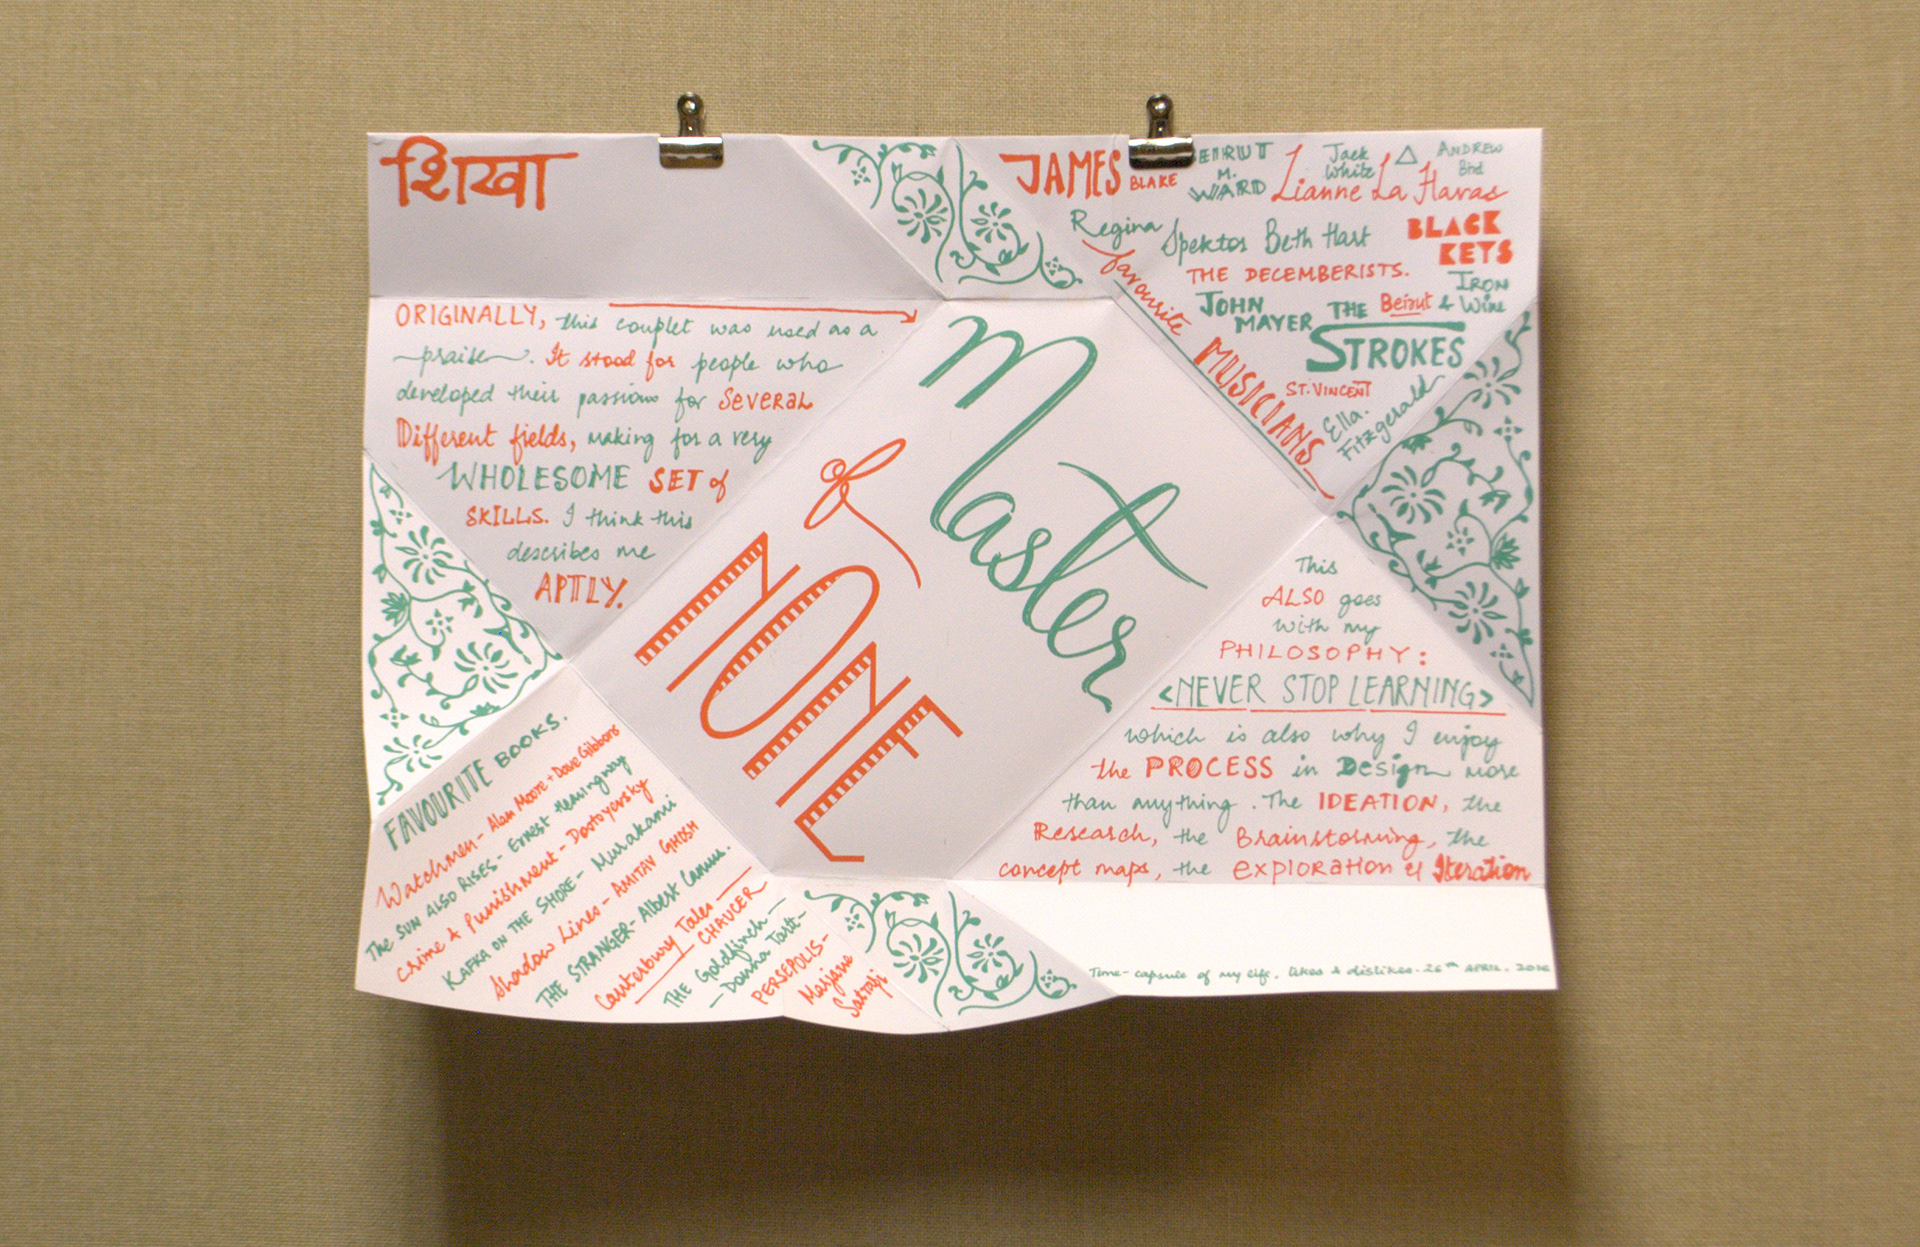 शिखा
ORIGINALLY, this couplet was used as a
praise. It stood for people who
developed their passions for Several
Different fields, making for a very
WHOLESOME SET of
SKILLS. I think this
describes me
APTLY.
Master
of
NONE
JAMES
BLAKE
EIRUT
M.
WARD
Jack
White
Δ
ANDREW
Bird
Lianne La Havas
Regina
Spektor Beth Hart
BLACK
KEYS
THE DECEMBERISTS.
JOHN
MAYER
THE
STROKES
Beirut & IRON
Wine
ST. VINCENT
Ella.
Fitzgerald
favourite
MUSICIANS
This
ALSO goes
with my
PHILOSOPHY:
<NEVER STOP LEARNING>
which is also why I enjoy
the PROCESS in Design more
than anything. The IDEATION, the
Research, the Brainstorming, the
concept maps, the exploration & Iteration
FAVOURITE BOOKS.
Watchmen - Alan Moore + Dave Gibbons
The SUN ALSO RISES - Ernest Hemingway
Crime & Punishment - Dostoyevsky
KAFKA ON THE SHORE - Murakami
Shadow Lines - AMITAV GHOSH
THE STRANGER - Albert Camus.
Canterbury Tales -
CHAUCER
THE Goldfinch -
- Donna Tartt -
PERSEPOLIS -
Marjane
Satrapi
Time-capsule of my life, likes & dislikes. 26th APRIL.